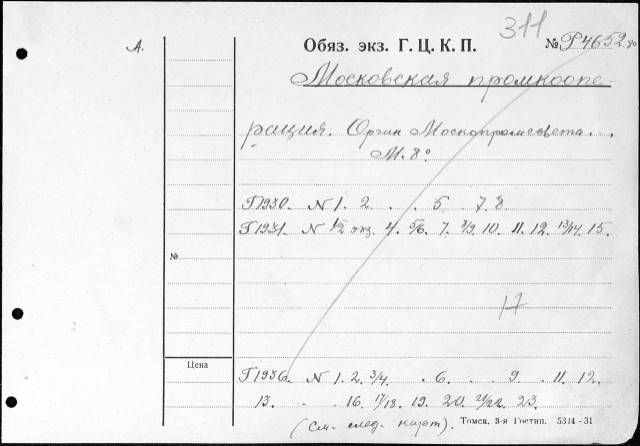 311
А.
Обяз. экз. Г. Ц. К. П.
№ Р4652.
Московская промкоопе-
рация. Орган Моспромсовета...
М. 8°
Г1930. N 1. 2. . . 5. . 7. 8.
Г1931. N 1/2 экз. 4. 5/6. 7. 8/9. 10. 11. 12. 13/14. 15.
№
17
Цена
Г1936. N 1. 2. 3/4. . 6. . . 9. . 11. 12.
13. . . 16. 17/18. 19. 20. 21/22. 23.
(См. след. карт).
Томск. 3-я Гостип. 5344-31